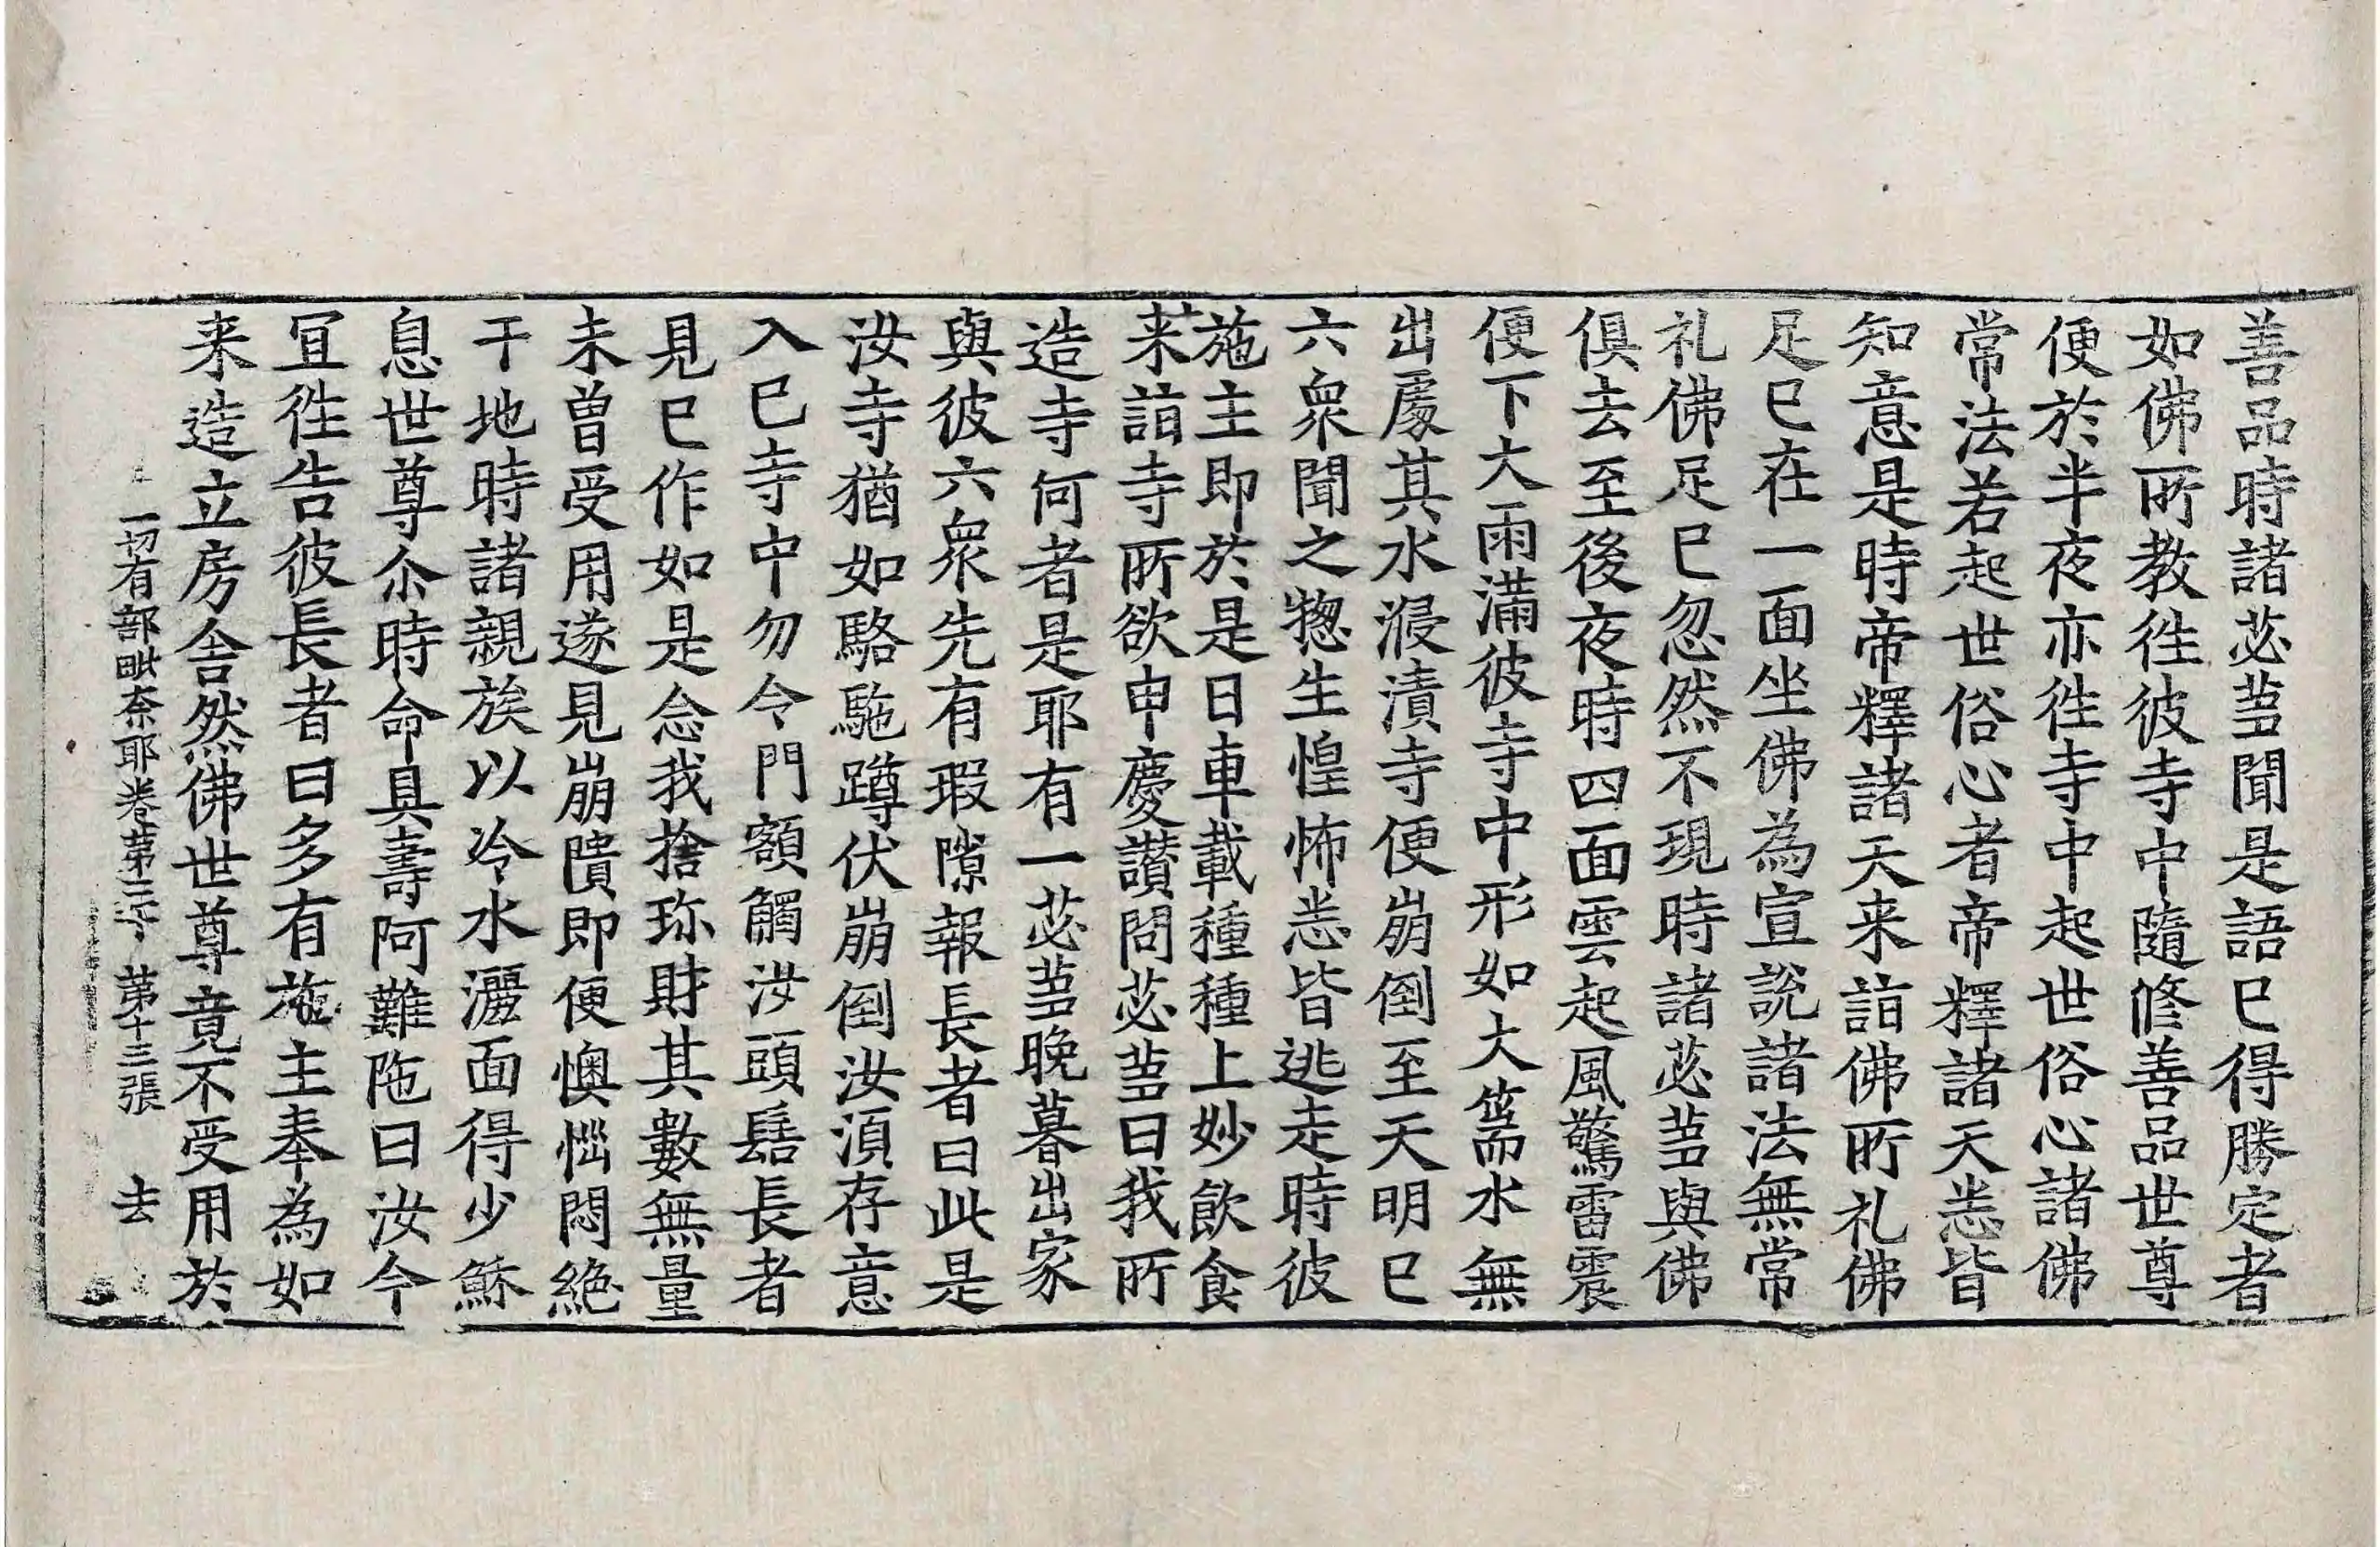 善品時諸苾蒭聞是語已得勝定者
如佛所教徃彼寺中隨修善品世尊
便於半夜亦徃寺中起世俗心諸佛
常法若起世俗心者帝釋諸天悉皆
知意是時帝釋諸天来詣佛所礼佛
足已在一面坐佛為宣說諸法無常
礼佛足已忽然不現時諸苾蒭與佛
俱去至後夜時四面雲起風驚雷震
便下大雨滿彼寺中形如大篅水無
出處其水浸漬寺便崩倒至天明已
六衆聞之惣生惶怖悉皆逃走時彼
施主即於是日車載種種上妙飲食
来詣寺所欲申慶讃問苾蒭曰我所
造寺何者是耶有一苾蒭晚暮出家
與彼六衆先有瑕隙報長者曰此是
汝寺猶如駱駞蹲伏崩倒汝湏存意
入已寺中勿令門額觸汝頭髻長者
見已作如是念我捨珎財其數無量
未曽受用遂見崩隤即便懊惱悶絕
干地時諸親族以冷水灑面得少穌
息世尊尒時命具壽阿難陁曰汝今
冝徃告彼長者曰多有施主奉為如
来造立房舎然佛世尊竟不受用於
一切有部毗奈耶卷第三十 第十三張 去